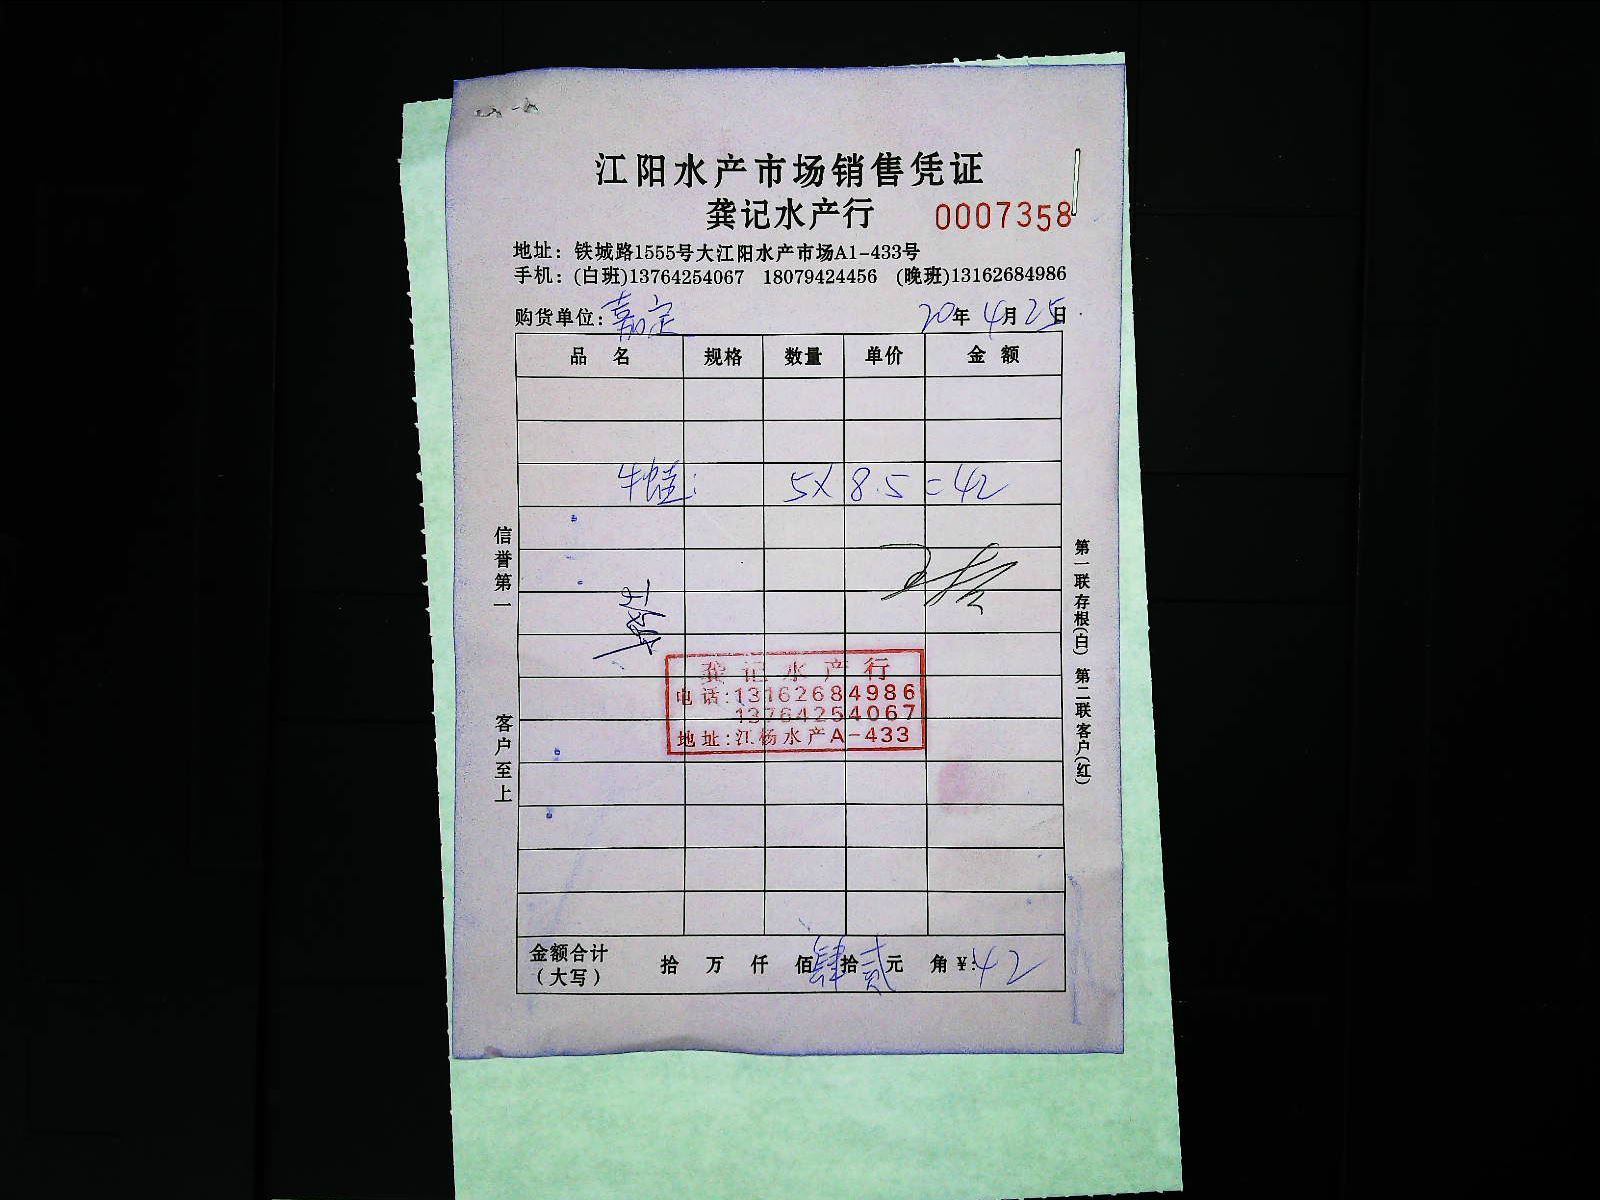 江阳水产市场销售凭证
龚记水产行 0007358
地址：铁城路1555号大江阳水产市场A1-433号
手机：(白班)13764254067 18079424456 (晚班)13162684986
购货单位：嘉定 20年4月25日
品名 规格 数量 单价 金额
牛蛙: 5X8.5=42
信誉第一
客户至上
第一联存根(白) 第二联客户(红)
龚记水产行
电话:13162684986
13764254067
地址:江杨水产A-433
金额合计 拾 万 仟 佰 肆拾贰元 角 ¥:42
(大写)